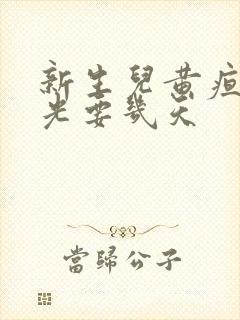 新生兒黃疸
光要幾天
當歸公子